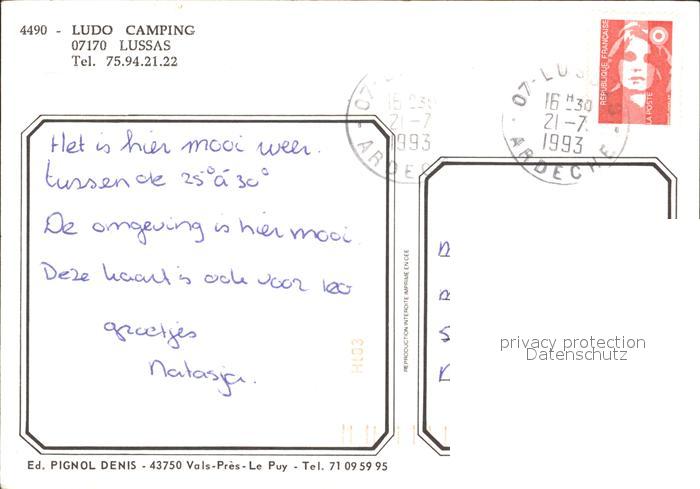 4490 - LUDO CAMPING
07170 LUSSAS
Tel. 75.94.21.22
RÉPUBLIQUE FRANÇAISE
LA POSTE
07-LUS
16 H 30
21-7
1993
ARDECHE
07-L
16 H 30
21-7
1993
ARDE
Het is hier mooi weer.
tussen de 25° á 30°
De omgeving is hier mooi.
Deze kaart is ook voor Leo
groetjes
Natasja.
REPRODUCTION INTERDITE IMPRIMÉ EN CEE
HL03
privacy protection
Datenschutz
Ed. PIGNOL DENIS - 43750 Vals-Près-Le Puy - Tel. 71 09 59 95